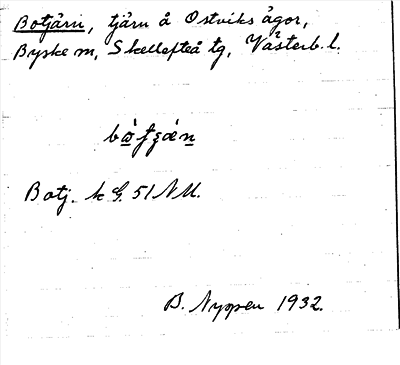 Botjärn, tjärn å Ostviks ägor,
Byske sn, Skellefteå tg, Västerb. l.
Botj. k G. 51 NU.
B. Nyppen 1932.